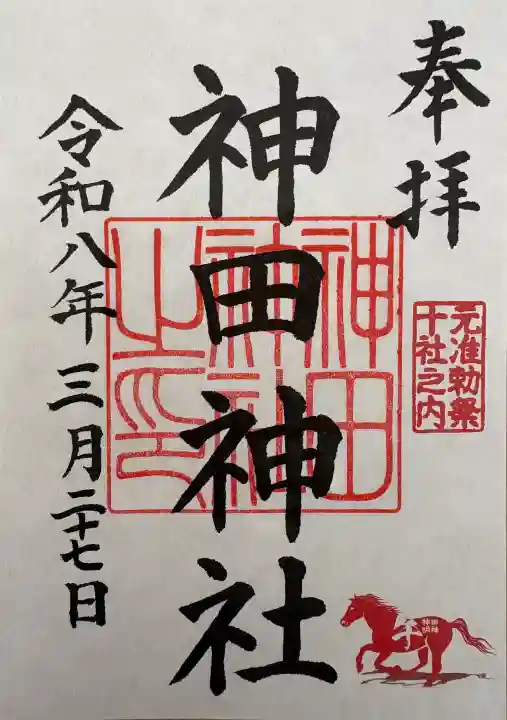 奉拝
元准勅祭
十社之内
神田神社
神田
神社
之印
令和八年三月二十七日
午